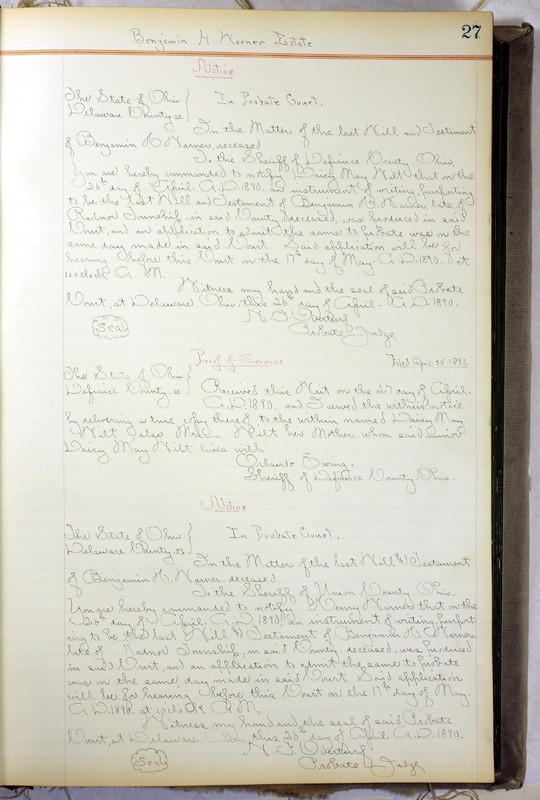 27
Benjamin H. Warner Estate
Notice
The State of Ohio } In Probate Court.
Delaware County ss
In the Matter of the last Will and Testament
of Benjamin H. Warner, deceased
To the Sheriff of Defiance County Ohio
You are hereby commanded to notify Daisy May Wilt that on the
26th day of April A.D. 1890. an instrument of writing, purporting
to be the Last Will and Testament of Benjamin H. Warner, late of
Radnor Township, in said County, deceased, was produced in said
Court, and an application to admit the same to probate was on the
same day made in said Court. Said application will be for
hearing before this Court on the 17th day of May A.D. 1890. at
10 o'clock A. M.
Witness my hand and the seal of said Probate
Court, at Delaware Ohio, this 26th day of April A.D. 1890.
N. F. Overturf
Seal
Probate Judge
Proof of Service Filed April 30 1890
The State of Ohio }
Defiance County, ss. Received this Writ on the 27 day of April
A.D. 1890, and I served the within notice
by delivering a true copy thereof to the within named Daisy May
Wilt, also Mrs. Wilt her Mother whom said minor
Daisy May Wilt lives with
Orlando Ewing.
Sheriff of Defiance County, Ohio.
Notice
The State of Ohio } In Probate Court.
Delaware County ss
In the Matter of the last Will & Testament
of Benjamin H. Warner, deceased.
To the Sheriff of Union County Ohio.
You are hereby commanded to notify Henry Warner that on the
26th day of April A.D. 1890, an instrument of writing, purport-
ing to be the last Will & Testament of Benjamin H. Warner,
late of Radnor Township, in said County, deceased, was produced
in said Court, and an application to admit the same to probate
was on the same day made in said Court. Said application
will be for hearing before this Court on the 17th day of May.
A.D. 1890. at 10 o'clock A. M.
Witness my hand and the seal of said Probate
Court, at Delaware Ohio this 26th day of April A.D. 1890.
N. F. Overturf
Seal
Probate Judge